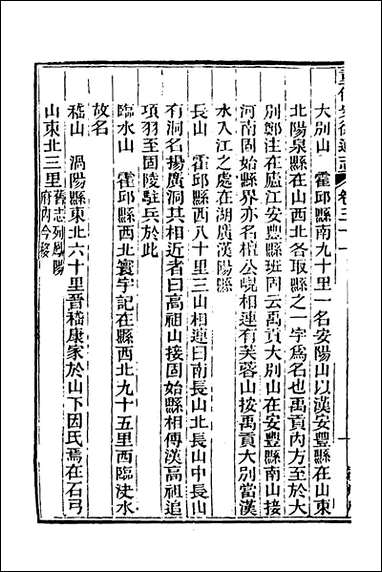 重修安徽通志 卷三十一
大別山 霍邱縣南九十里一名安陽山以漢安豐縣在山東
北陽泉縣在山西北各取縣之一字爲名也禹貢內方至於大
別鄭注在廬江安豐縣班固云禹貢大別山在安豐縣南山接
河南固始縣界亦名檀公峴相連有芙蓉山按禹貢大別當漢
水入江之處在湖廣漢陽縣
長山 霍邱縣西八十里三山相連曰南長山北長山中長山
有洞名揚廣洞其相近者曰高祖山接固始縣相傳漢高祖追
項羽至固陵駐兵於此
臨水山 霍邱縣西北寰宇記在縣西北九十五里西臨決水
故名
嵇山 渦陽縣東北六十里晉嵇康家於山下因氏焉在石弓
山東北三里舊志列鳳陽
府內今移